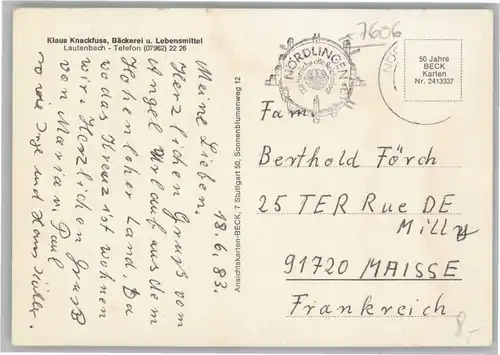 Klaus Knackfuss, Bäckerei u. Lebensmittel
Lautenbach - Telefon (07962) 22 26
Meine Lieben. 18.6.83.
Herzlichen Gruß vom
Angel Urlaub aus dem
Hohenloher Land. Da
wo das Kreuz ist wohnen
wir. Herzlichen Gruß
von Maria u. Paul
so wie Inge und Hans
Ansichtskarten-BECK, 7 Stuttgart 50, Sonnenblumenweg 12
NÖRDLINGEN
7606
50 Jahre
BECK
Karten
Nr. 2413337
Fam.
Berthold Förch
25 TER Rue DE
Milly
91720 MAISSE
Frankreich
8,-